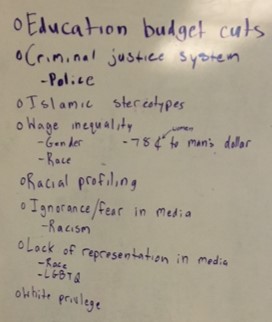 o Education budget cuts
o Criminal justice system
- Police
o Islamic stereotypes
o Wage inequality
women
- Gender - 78¢ to man's dollar
- Race
o Racial profiling
o Ignorance/fear in media
- Racism
o Lack of representation in media
- Race
- LGBTQ
o White privlege